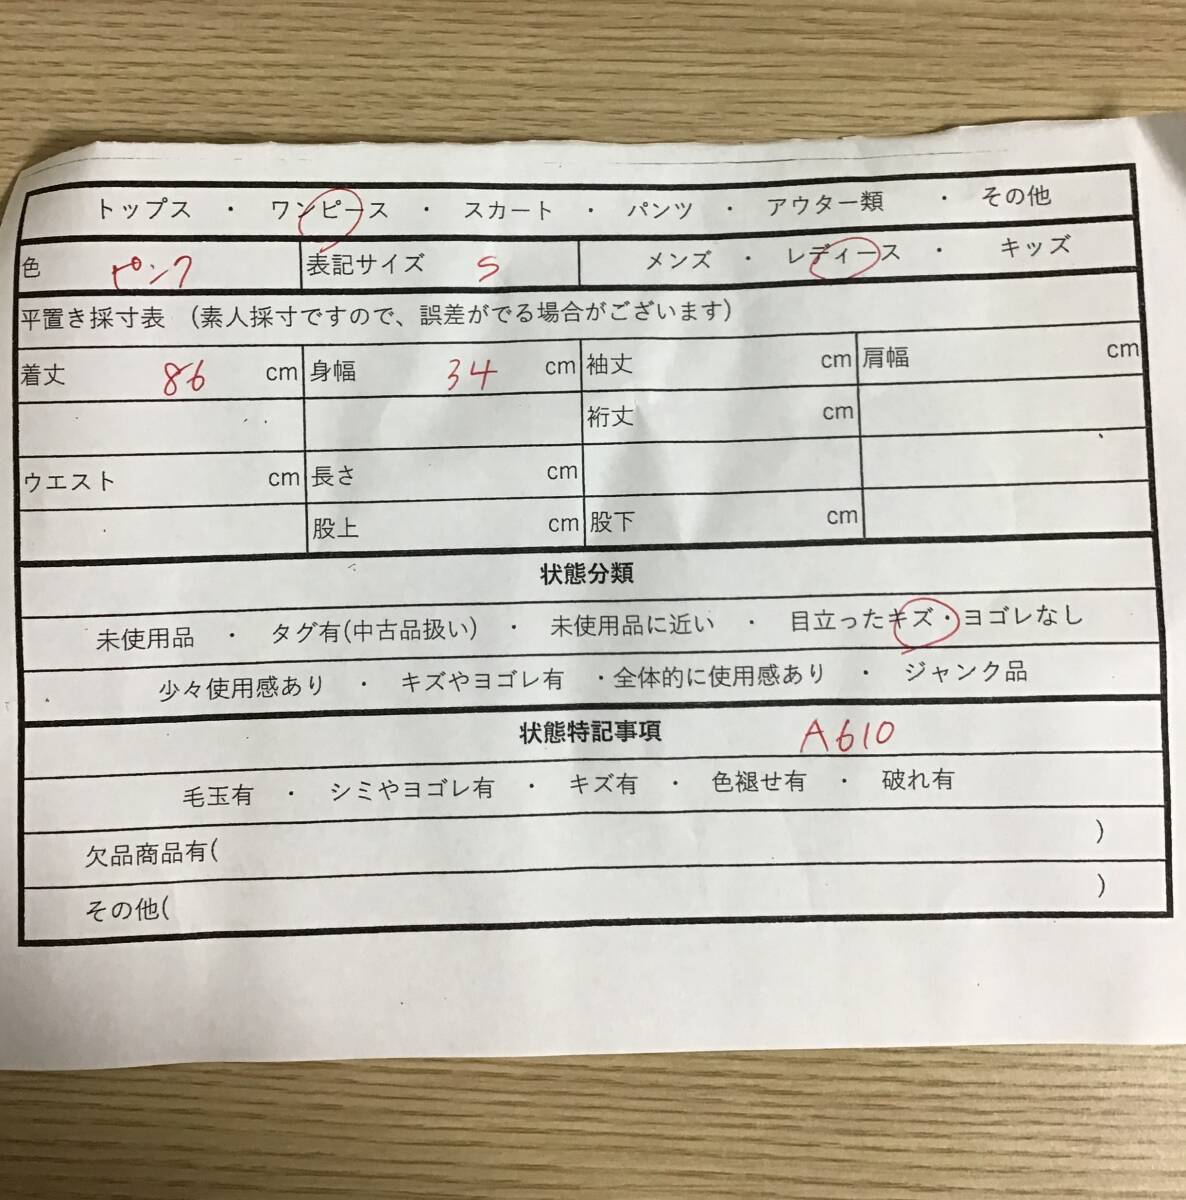 トップス ・ ワンピース ・ スカート ・ パンツ ・ アウター類 ・ その他
色 ピンク 表記サイズ S メンズ ・ レディース ・ キッズ
平置き採寸表 (素人採寸ですので、誤差がでる場合がございます)
着丈 86 cm 身幅 34 cm 袖丈 cm 肩幅 cm
裄丈 cm
ウエスト cm 長さ cm
股上 cm 股下 cm
状態分類
未使用品 ・ タグ有(中古品扱い) ・ 未使用品に近い ・ 目立ったキズ・ヨゴレなし
少々使用感あり ・ キズやヨゴレ有 ・全体的に使用感あり ・ ジャンク品
状態特記事項 A610
毛玉有 ・ シミやヨゴレ有 ・ キズ有 ・ 色褪せ有 ・ 破れ有
欠品商品有( )
その他( )